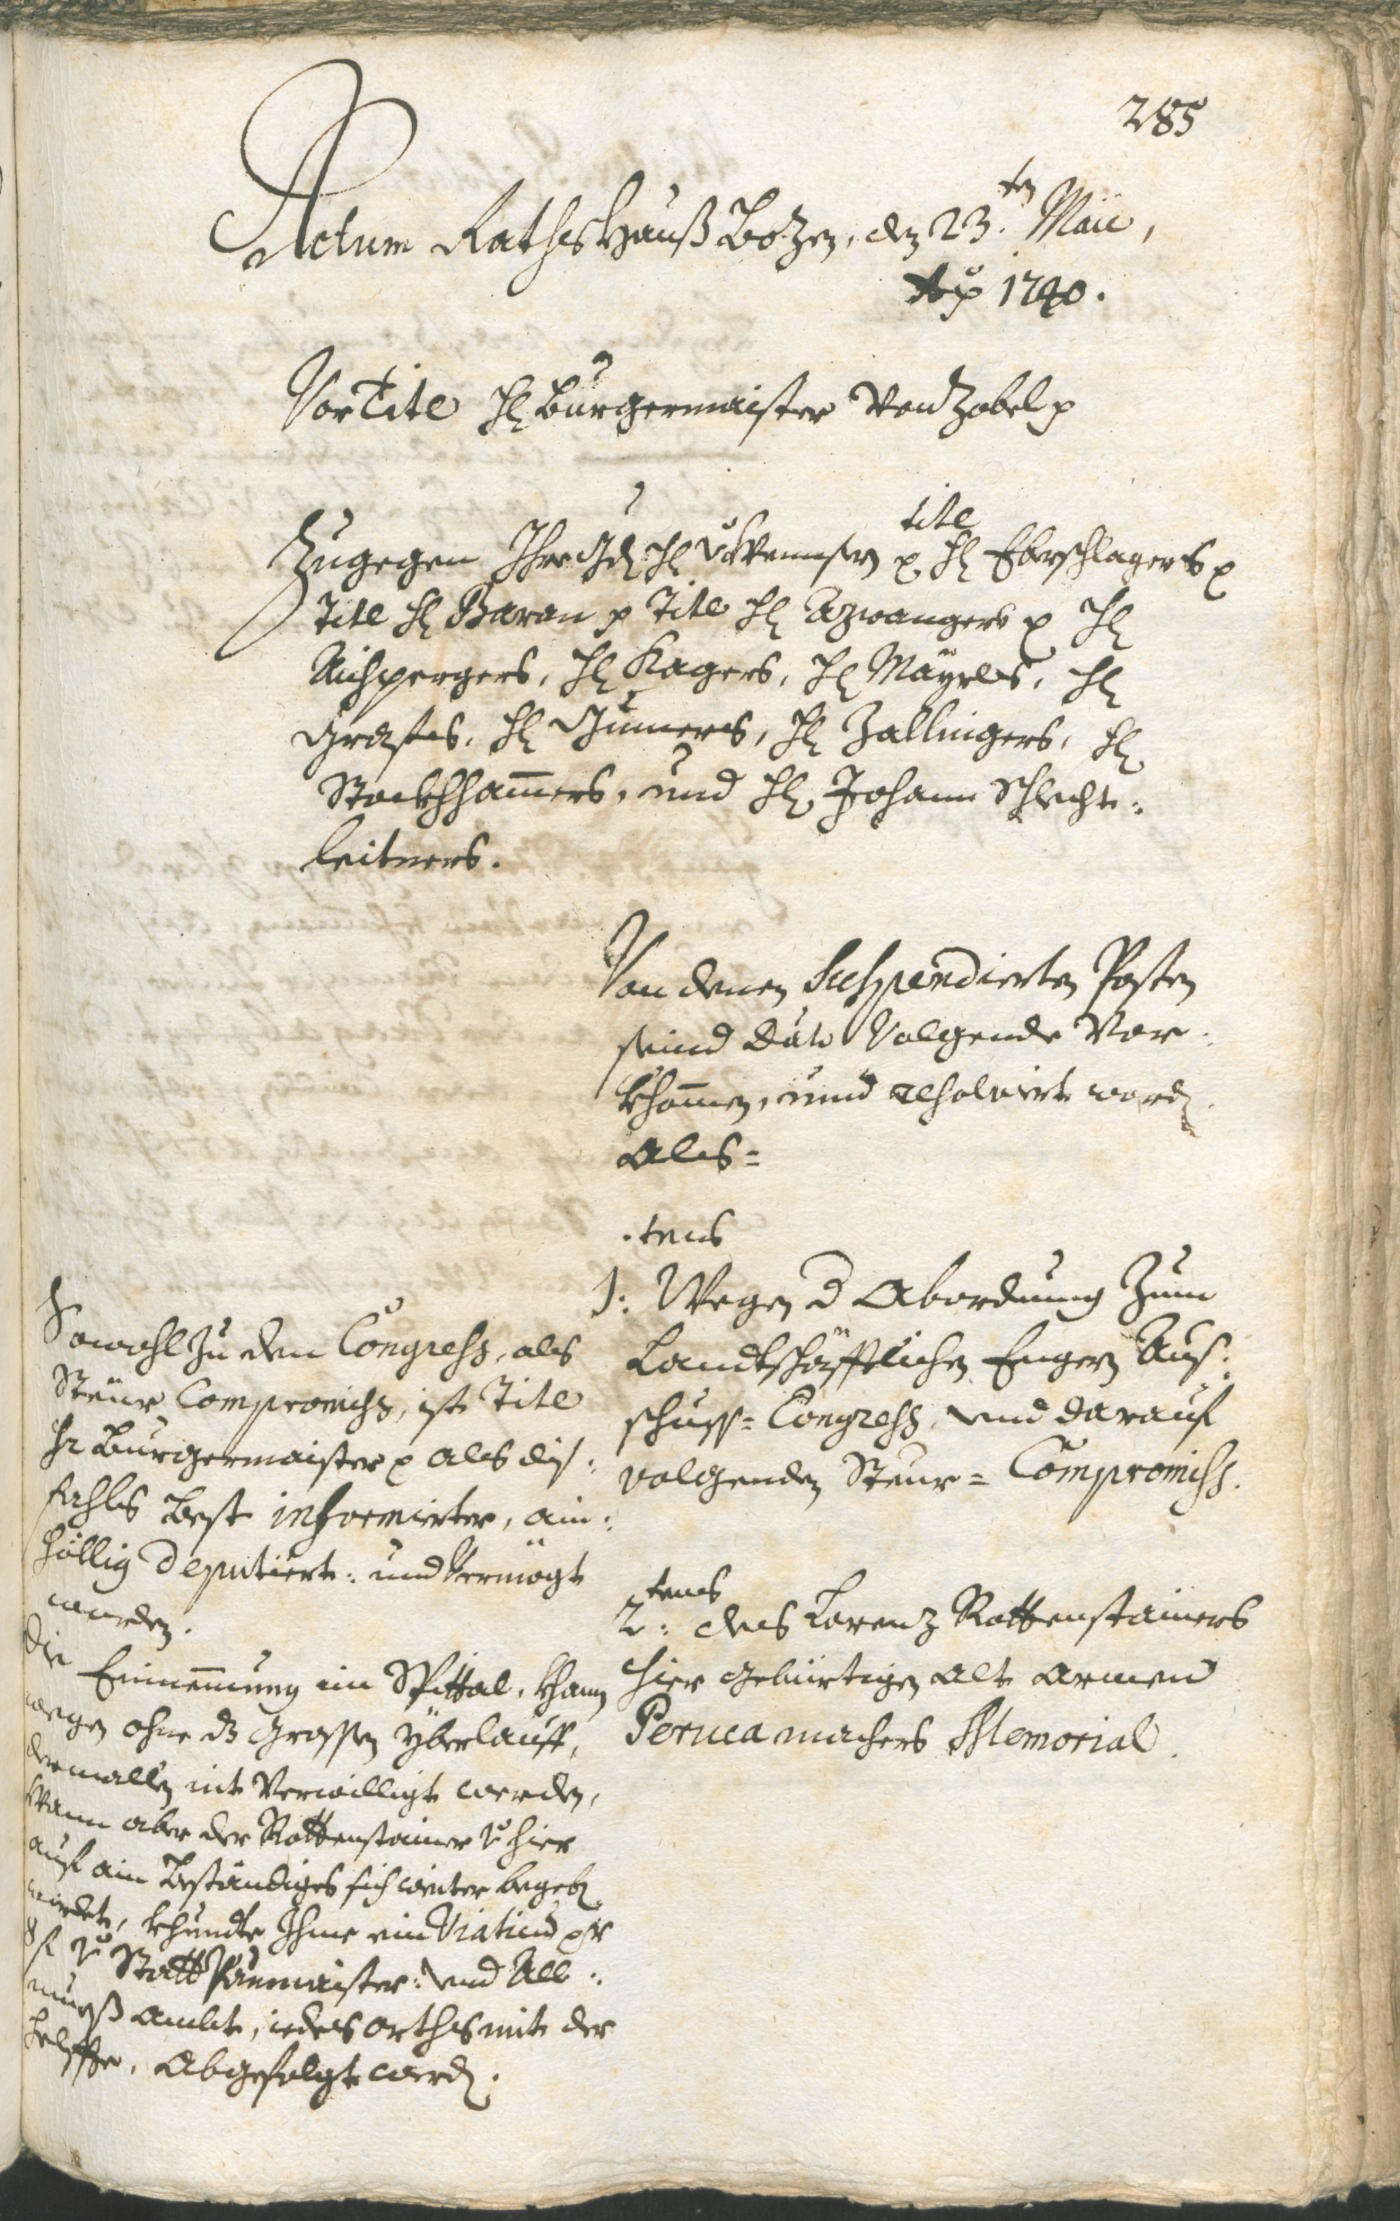 285
Actum Rathshauß Bozen, den 23.ten Maii,
Aõ 1740.
Vor Titl Hℓ Burgermaister Von Zobel p
Zugegen Ihro Hℓ p titl Hℓ Eberschlagers p
Titl Hℓ Baron p Titl Hℓ Azwangers p Hℓ
Aichpergers, Hℓ Kagers, Hℓ Mäyrls, Hℓ
Grafens, Hℓ Gumers, Hℓ Zallingers, Hℓ
Stockhhamers, und Hℓ Johann Schlecht-
leitners.
Von denen Suspendierten Posten
seind dato Volgende Vor-
khomen, und resolvirt word.
Als=
1.tens Wegen d Abordnung Zum
Landtschäfftlichen Engern Aus-
schuss= Congress, und darauf
volgenden Steur= Compromiss.
2.tens des Lorenz Rottenstainers
hier gebürtigen alt armen
Peruca machers Memorial.
Sowohl zu dem Congress, als
Steur Compromiss, ist Titl
Hr Burgermaister p als dis-
fahls best informirter, ain-
höllig deputiert: und Vermögt
worden.
Die Einnemung im Spittal, khan
wegen ohne ds grossen yberlauff,
dermallen nit Verwilligt werden,
Wann aber der Rottenstainer v hier
auf ain beständiges sich weiter begeb
wurdet, khundte Ihme ein Viaticum pr
8 f v Statt Paumaister: und All-
mueß Ambt, iedes orths mit der
helffte, abgefolgt werd.